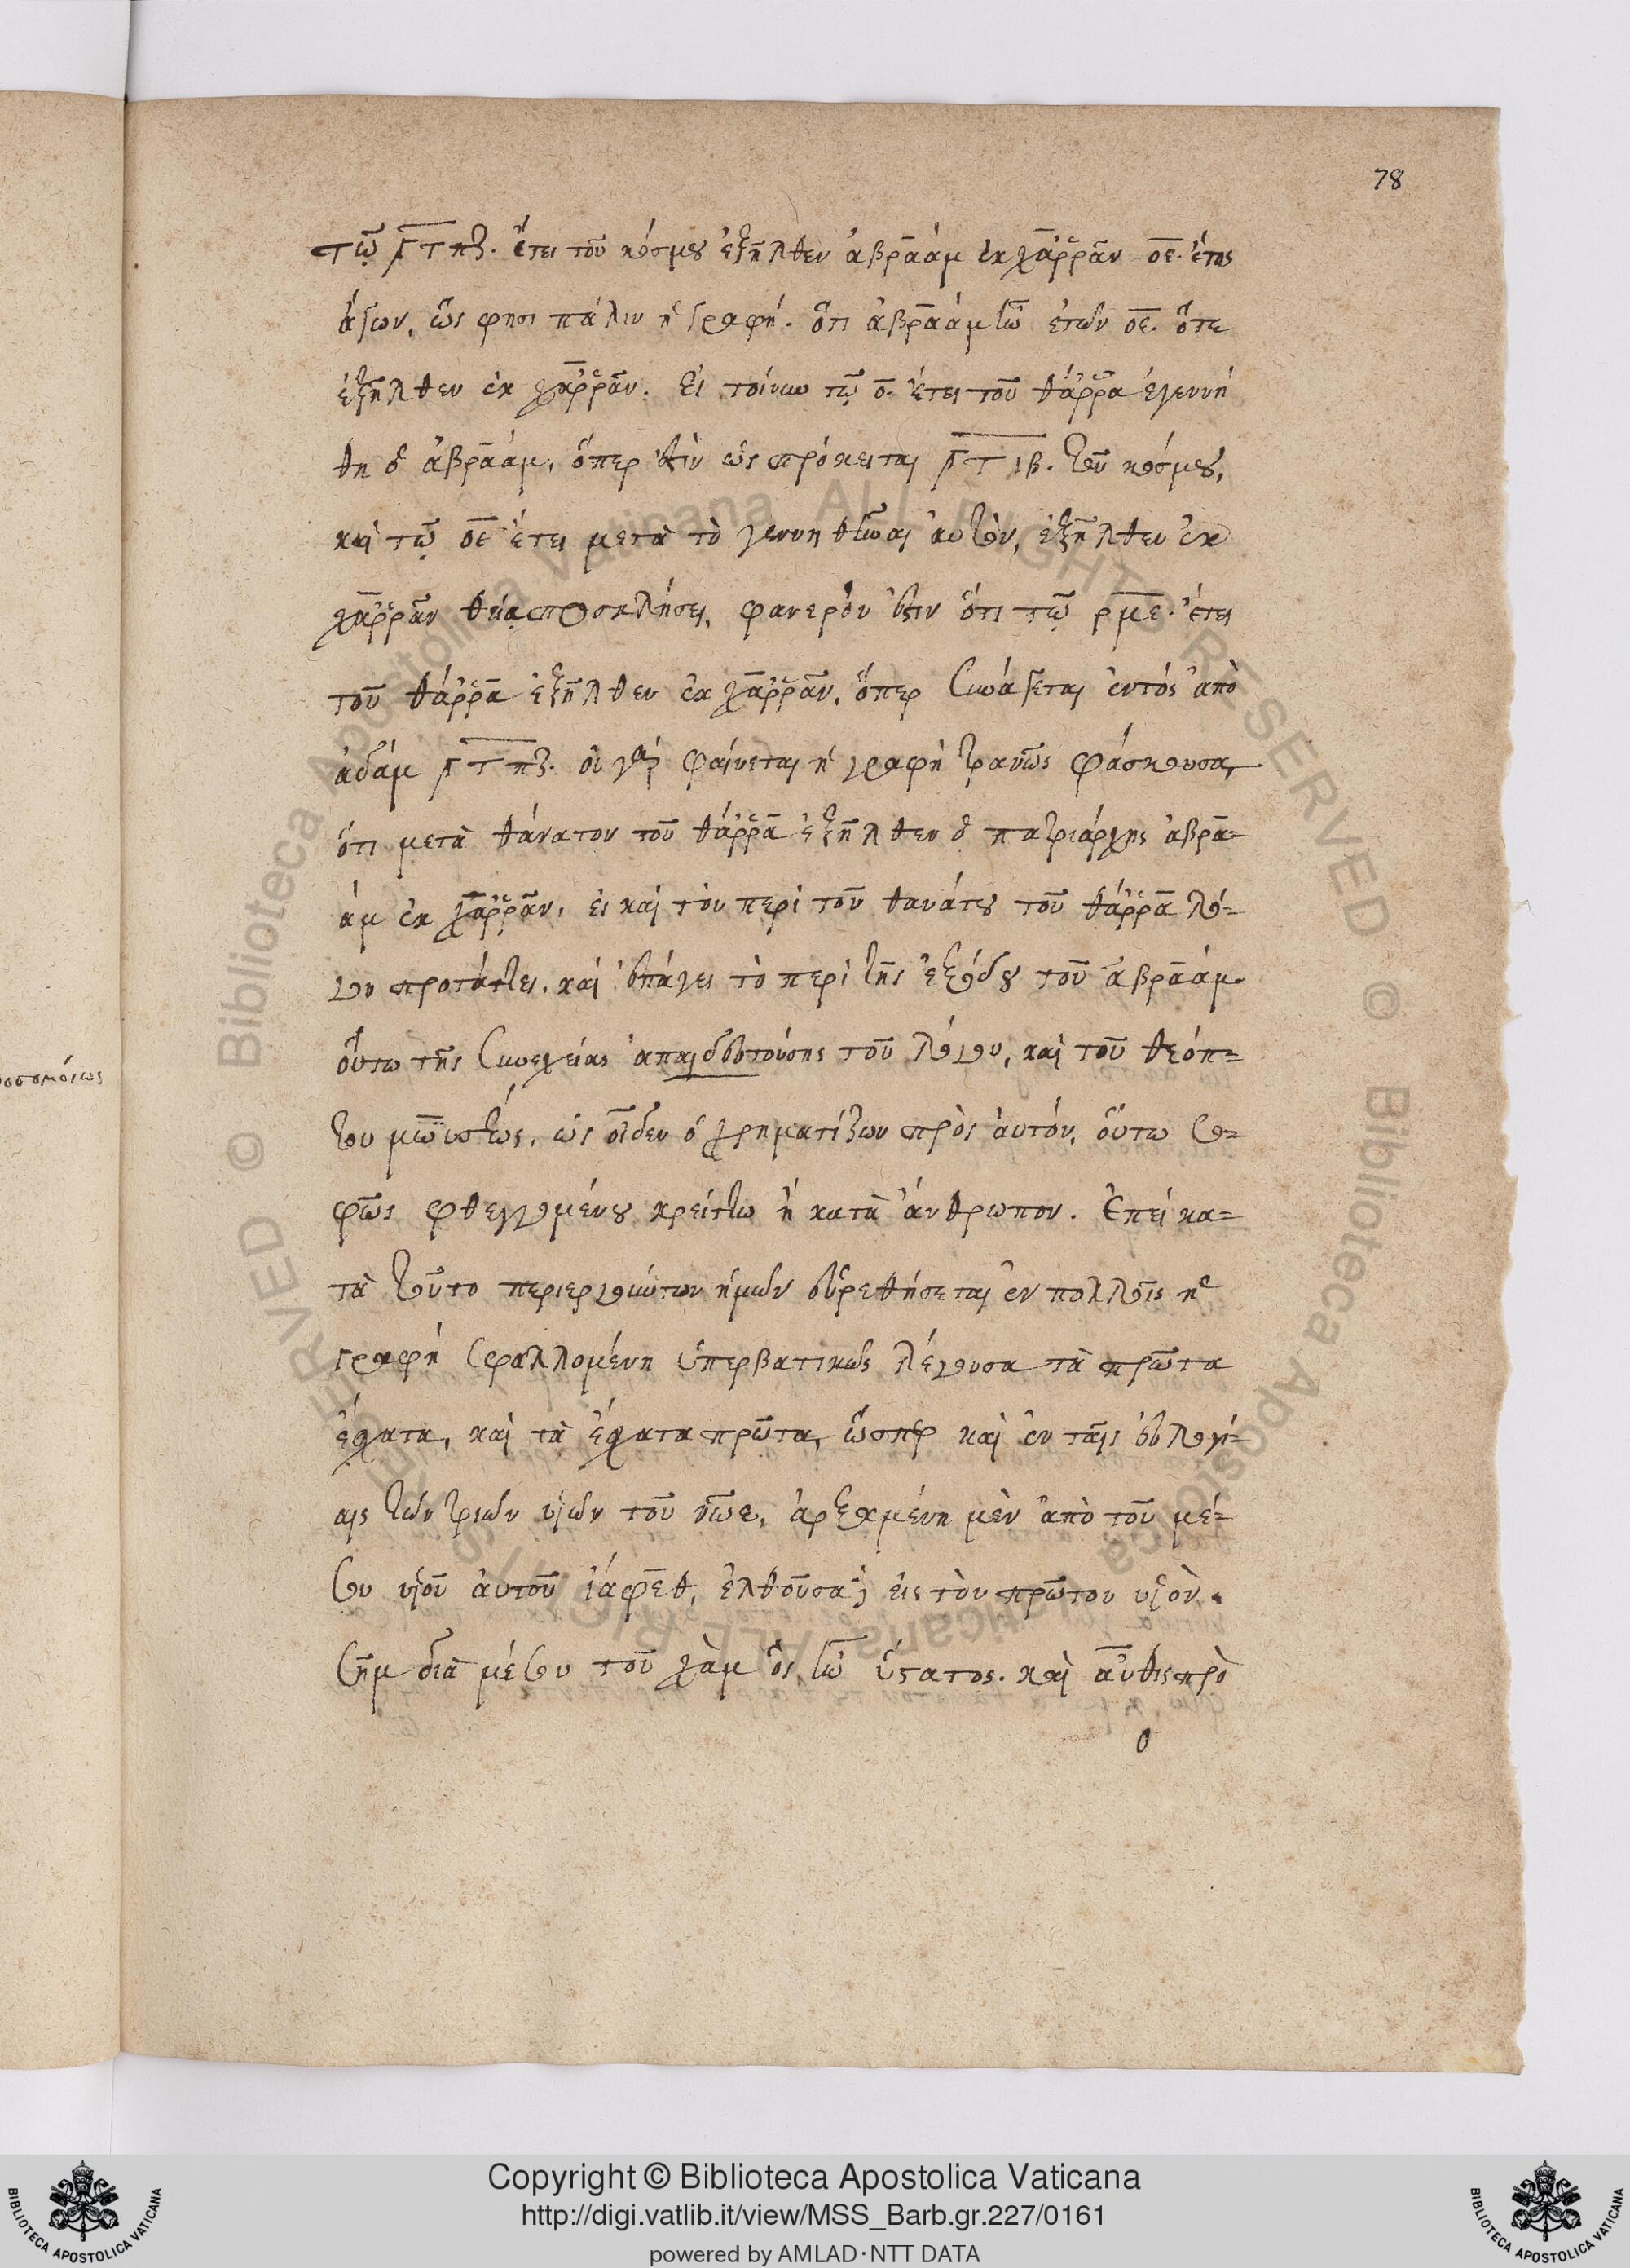 78
τῷ ͵γτπζ. ἔτει τοῦ κόσμου ἐξῆλθεν ἀβραὰμ ἐκ χαρρὰν οε. ἔτος
ἄγων, ὥς φησι πάλιν ἡ γραφή. ὅτι ἀβραὰμ ἦν ἐτῶν οε. ὅτε
ἐξῆλθεν ἐκ χαρρὰν. εἰ τοίνυν τῷ ο. ἔτει τοῦ θάρρα ἐγεννή
θη ὁ ἀβραάμ, ὅπερ ἐστὶν ὡς πρόκειται ͵γτιβ. τοῦ κόσμου,
καὶ τῷ οε ἔτει μετὰ τὸ γεννηθῆναι αὐτὸν, ἐξῆλθεν ἐκ
χαρρὰν θείᾳ προσκλήσει, φανερόν ἐστιν ὅτι τῷ ρμε. ἔτει
τοῦ θάρρα ἐξῆλθεν ἐκ χαρρὰν, ὅπερ συνάγεται ἐντός ἀπὸ
ἀδάμ ͵γτπζ. οὐ γὰρ φαίνεται ἡ γραφὴ τρανῶς φάσκουσα,
ὅτι μετὰ θάνατον τοῦ θάρρα ἐξῆλθεν ὁ πατριάρχης ἀβρα=
άμ ἐκ χαρρὰν, εἰ καὶ τὸν περὶ τοῦ θανάτου τοῦ θάρρα λό=
γον προτάττει, καὶ ἐπάγει τὸ περὶ τῆς ἐξόδου τοῦ ἀβραάμ.
οὕτω τῆς συνεχείας ἀπαιδευτούσης τοῦ λόγου, καὶ τοῦ θεόπ=
του μωϋσέως, ὡς οἶδεν ὁ χρηματίζων πρὸς ἀυτόν, οὕτω σο=
φῶς φθεγγομένου κρείττω ἢ κατὰ ἄνθρωπον. Ἐπεὶ κα=
τὰ τοῦτο περιεργούντων ἡμῶν εὑρεθήσεται ἐν πολλοῖς ἡ
γραφὴ σφαλλομένη ὑπερβατικῶς λέγουσα τὰ πρῶτα
ἔσχατα, καὶ τὰ ἔσχατα πρῶτα, ὥσπερ καὶ ἐν ταῖς εὐλογί=
αις τῶν τριῶν υἱῶν τοῦ νῶε, ἀρξαμένη μὲν ἀπὸ τοῦ μέ=
σου υἱοῦ ἀυτοῦ ἰάφεθ, ἐλθοῦσα δὲ εἰς τὸν πρῶτον υἱὸν.
σῆμ διὰ μέσου τοῦ χὰμ ὃς ἦν ὕστατος. καὶ αὖθις πρὸ
ο
Copyright © Biblioteca Apostolica Vaticana
http://digi.vatlib.it/view/MSS_Barb.gr.227/0161
powered by AMLAD·NTT DATA
BIBLIOTECA APOSTOLICA VATICANA
BIBLIOTECA APOSTOLICA VATICANA